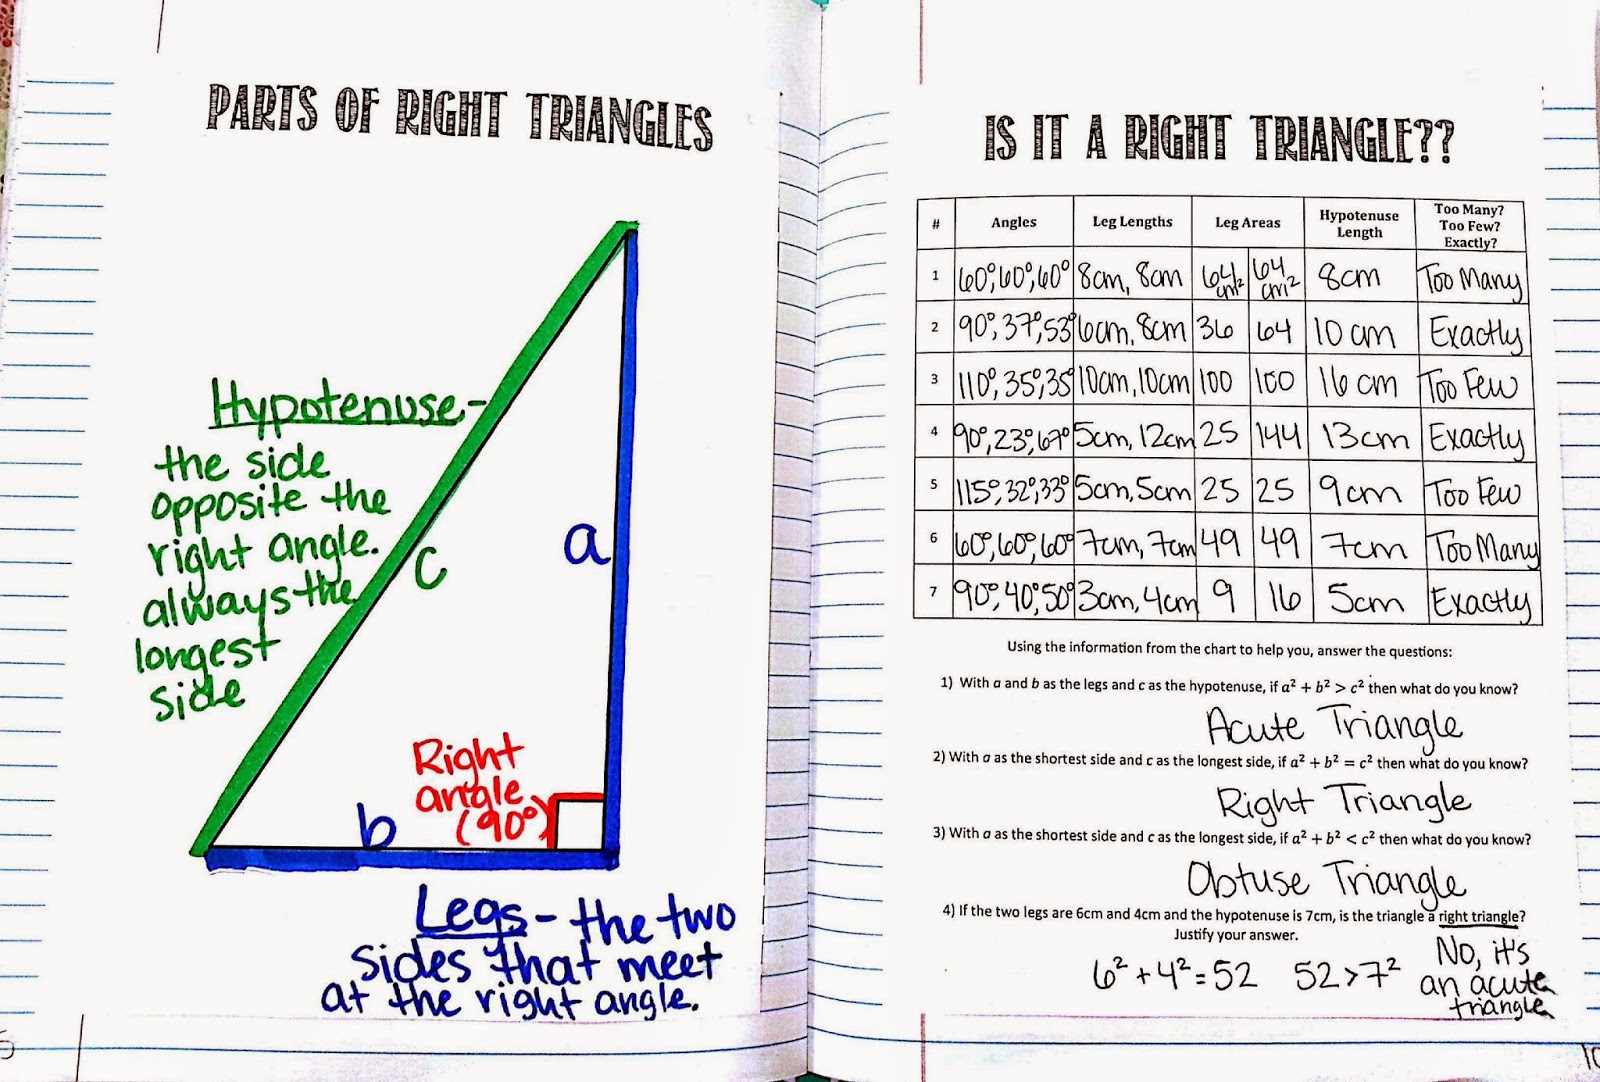 PARTS OF RIGHT TRIANGLES
Hypotenuse-
the side
opposite the
right angle.
always the
longest
side
c
a
b
Right
angle
(90°)
Legs - the two
sides that meet
at the right angle.
IS IT A RIGHT TRIANGLE??
# Angles Leg Lengths Leg Areas Hypotenuse Length Too Many? Too Few? Exactly?
1 60°, 60°, 60° 8cm, 8cm 64 cm² 64 cm² 8cm Too Many
2 90°, 37°, 53° 6cm, 8cm 36 64 10 cm Exactly
3 110°, 35°, 35° 10cm, 10cm 100 100 16 cm Too Few
4 90°, 23°, 67° 5cm, 12cm 25 144 13cm Exactly
5 115°, 32°, 33° 5cm, 5cm 25 25 9cm Too Few
6 60°, 60°, 60° 7cm, 7cm 49 49 7cm Too Many
7 90°, 40°, 50° 3cm, 4cm 9 16 5cm Exactly
Using the information from the chart to help you, answer the questions:
1) With a and b as the legs and c as the hypotenuse, if a² + b² > c² then what do you know?
Acute Triangle
2) With a as the shortest side and c as the longest side, if a² + b² = c² then what do you know?
Right Triangle
3) With a as the shortest side and c as the longest side, if a² + b² < c² then what do you know?
Obtuse Triangle
4) If the two legs are 6cm and 4cm and the hypotenuse is 7cm, is the triangle a right triangle?
Justify your answer.
6² + 4² = 52 52 > 7²
No, it's
an acute
triangle